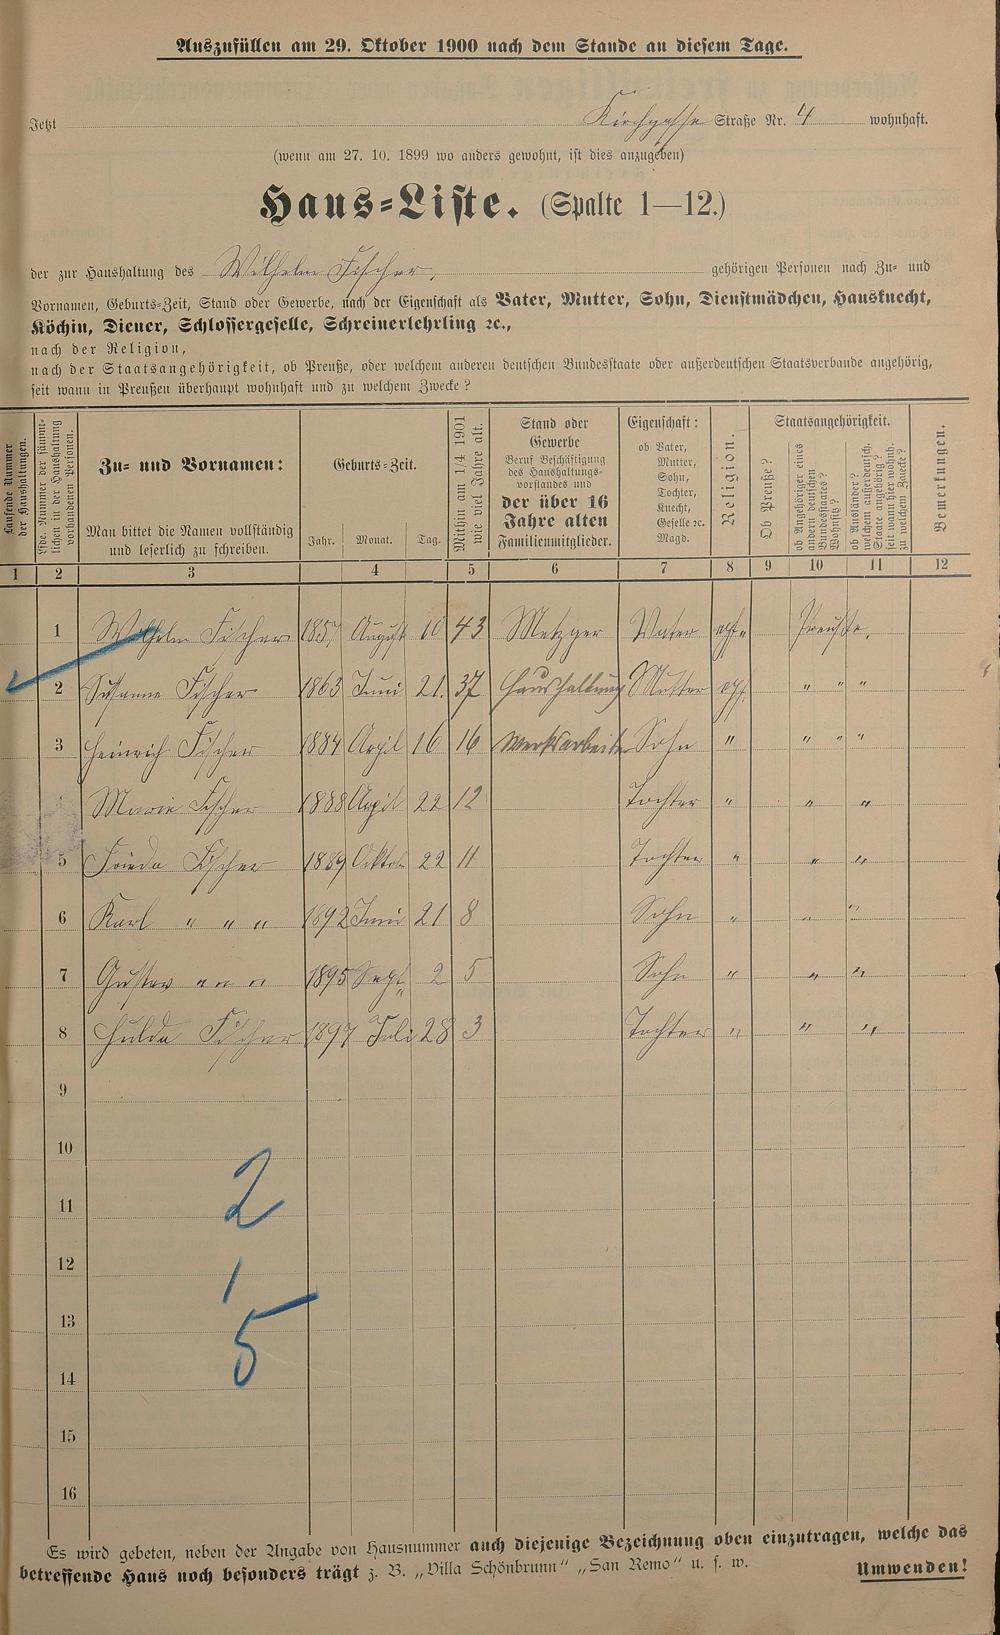 Auszufüllen am 29. Oktober 1900 nach dem Stande an diesem Tage.
Jetzt Kirchgasse Straße Nr. 4 wohnhaft.
(wenn am 27. 10. 1899 wo anders gewohnt, ist dies anzugeben)
Haus-Liste. (Spalte 1—12.)
der zur Haushaltung des Wilhelm Fischer, gehörigen Personen nach Zu- und
Vornamen, Geburts-Zeit, Stand oder Gewerbe, nach der Eigenschaft als Vater, Mutter, Sohn, Dienstmädchen, Hausknecht,
Köchin, Diener, Schlossergeselle, Schreinerlehrling ꝛc.,
nach der Religion,
nach der Staatsangehörigkeit, ob Preuße, oder welchem anderen deutschen Bundesstaate oder außerdeutschen Staatsverbande angehörig,
seit wann in Preußen überhaupt wohnhaft und zu welchem Zwecke?
Laufende Nummer
der Haushaltungen.
Lfde. Nummer der sämmt-
lichen in der Haushaltung
vorhandenen Personen.
Zu- und Vornamen:
Man bittet die Namen vollständig
und leserlich zu schreiben.
Geburts-Zeit.
Jahr. Monat. Tag.
Mithin am 1/4 1901
wie viel Jahre alt.
Stand oder
Gewerbe
Beruf Beschäftigung
des Haushaltungs-
vorstandes und
der über 16
Jahre alten
Familienmitglieder.
Eigenschaft:
ob Vater,
Mutter,
Sohn,
Tochter,
Knecht,
Geselle ꝛc.
Magd.
Religion.
Staatsangehörigkeit.
Ob Preuße?
ob Angehöriger eines
andern deutschen
Bundesstaates?
Wohnsitz?
ob Ausländer?
welchem außerdeutsch.
Staate angehörig?
seit wann hier wohnh.
zu welchem Zwecke?
Bemerkungen.
1 2 3 4 5 6 7 8 9 10 11 12
1 Wilhelm Fischer 1857 August 10 43 Metzger Vater Preuße.
2 Susanne Fischer 1863 Juni 21. 37 Haushaltung Mutter " " "
3 Heinrich Fischer 1884 April 16 16 Werksarbeiter Sohn " " " "
Marie Fischer 1888 April 22 12 Tochter " " "
5 Frieda Fischer 1889 Oktob 22 11 Tochter " " "
6 Karl " " " 1892 Juni 21 8 Sohn " " "
7 Gustav " " " 1895 Sept. 2 5 Sohn " " "
8 Hulda Fischer 1897 Juli 28 3 Tochter " " "
9
10
11
12
13
14
15
16
2
1
5
Es wird gebeten, neben der Angabe von Hausnummer auch diejenige Bezeichnung oben einzutragen, welche das
betreffende Haus noch besonders trägt z. B. „Villa Schönbrunn“ „San Remo“ u. s. w. Umwenden!